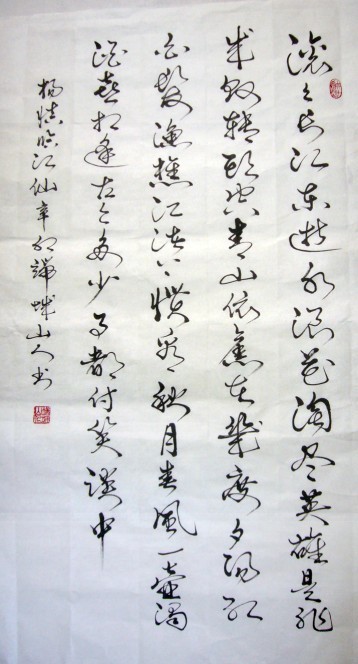 滚々长江东逝水浪花淘尽英雄是非
成败转头空青山依旧在几度夕阳红
白发渔樵江渚上惯看秋月春风一壶浊
酒喜相逢古今多少事都付笑谈中
杨慎临江仙辛卯端
山人书